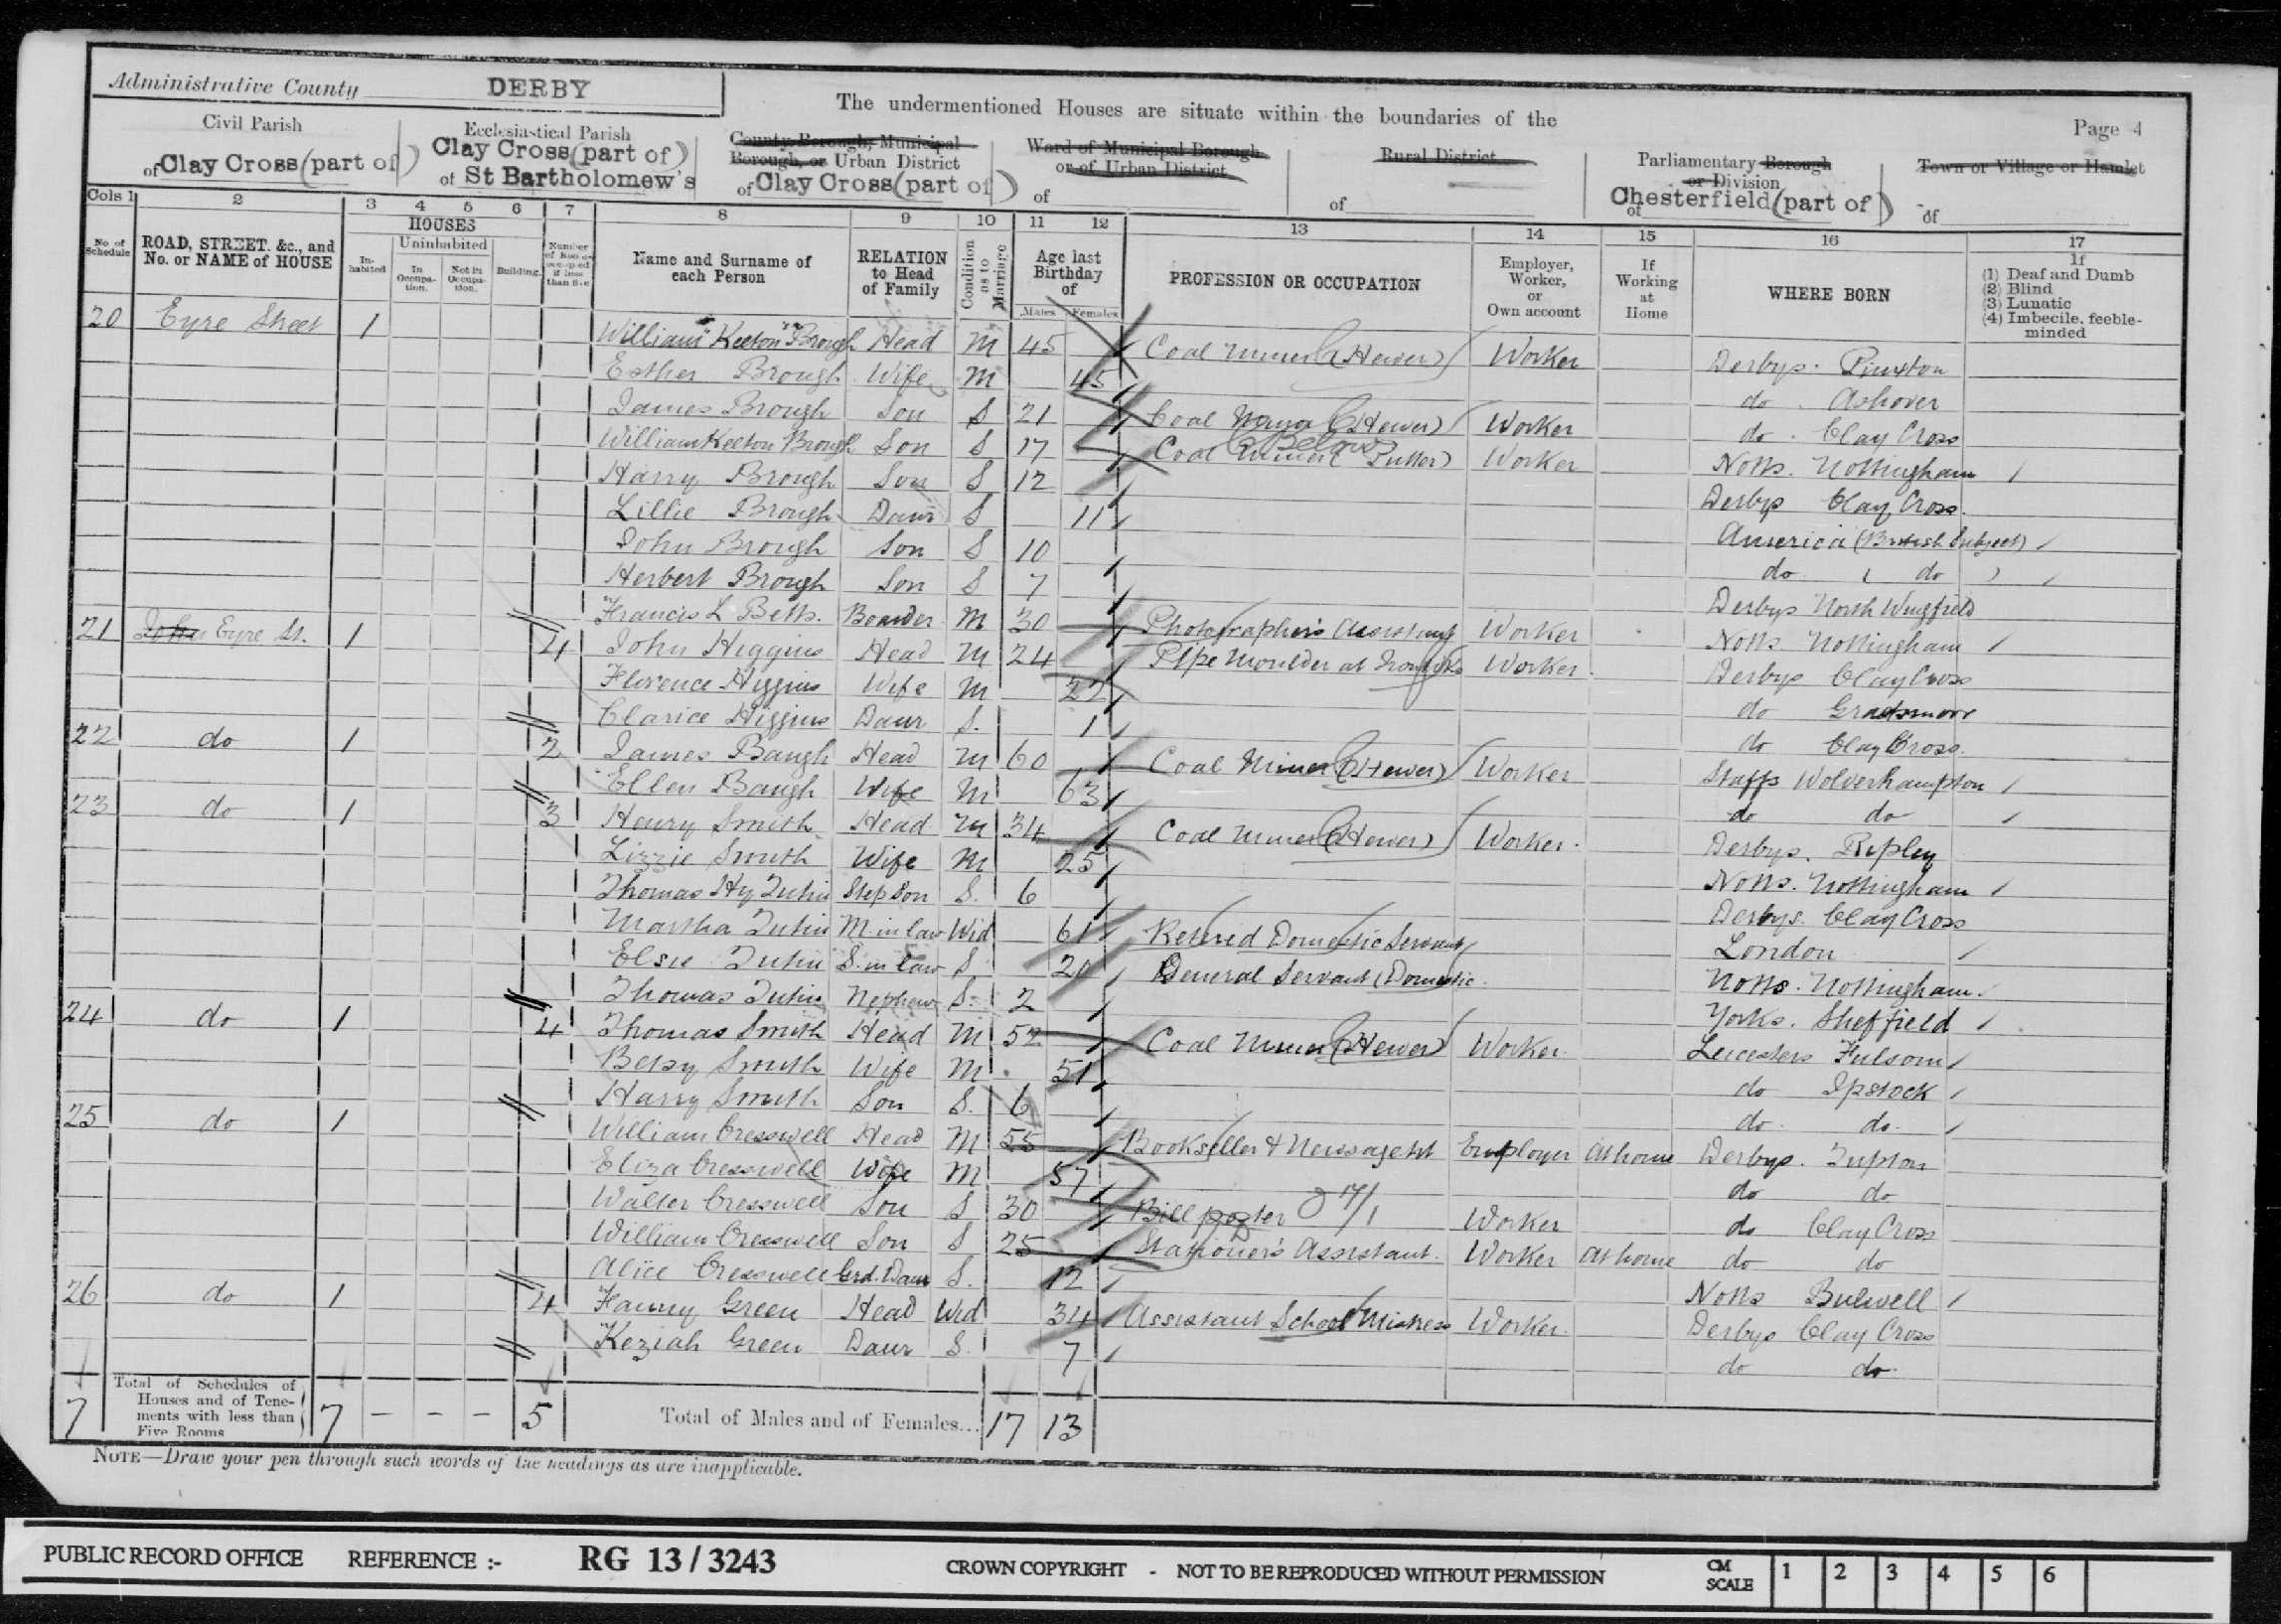 Administrative County DERBY
The undermentioned Houses are situate within the boundaries of the
Page 4
Civil Parish
of Clay Cross (part of)
Ecclesiastical Parish
Clay Cross (part of)
of St Bartholomew's
County Borough, Municipal
Borough, or Urban District
of Clay Cross (part of)
Ward of Municipal Borough
or of Urban District
of
Rural District
of
Parliamentary Borough
or Division
of Chesterfield (part of)
Town or Village or Hamlet
of
Cols 1 2 3 4 5 6 7 8 9 10 11 12 13 14 15 16 17
No of Schedule
ROAD, STREET, &c., and No. or NAME of HOUSE
HOUSES
Inhabited
Uninhabited
In Occupation.
Not in Occupation.
Building.
Number of Rooms occupied if less than five
Name and Surname of each Person
RELATION to Head of Family
Condition as to Marriage
Age last Birthday of
Males Females
PROFESSION OR OCCUPATION
Employer, Worker, or Own account
If Working at Home
WHERE BORN
If
(1) Deaf and Dumb
(2) Blind
(3) Lunatic
(4) Imbecile, feeble-minded
20 Eyre Street 1 William Keeton Brough Head M 45 Coal Miner (Hewer) Worker Derbys. Pinxton
Esther Brough Wife M 45 do Ashover
James Brough Son S 21 Coal Miner (Hewer) Worker do Clay Cross
William Keeton Brough Son S 17 Coal Miner (Putter) Below Worker Notts. Nottingham
Harry Brough Son S 12 Derbys Clay Cross
Lillie Brough Daur S 11 America (British Subject)
John Brough Son S 10 do ( do )
Herbert Brough Son S 7 Derbys North Wingfield
Francis L Betts. Boarder M 30 Photographer's Assistant Worker Notts Nottingham
21 John Eyre St. 1 4 John Higgins Head M 24 Pipe Moulder at Ironwks Worker Derbys Clay Cross
Florence Higgins Wife M 22 do
Clarice Higgins Daur S. 1 do Clay Cross
22 do 1 2 James Baugh Head M 60 Coal Miner (Hewer) Worker Staffs Wolverhampton
Ellen Baugh Wife M 63 do do
23 do 1 3 Henry Smith Head M 34 Coal Miner (Hewer) Worker Derbys. Ripley
Lizzie Smith Wife M 25 Notts. Nottingham
Thomas Hy Tutin Step Son S. 6 Derbys. Clay Cross
Martha Tutin M. in law Wid 61 Retired Domestic Servant London
Elsie Tutin S. in law S 20 General Servant (Domestic Notts. Nottingham
Thomas Tutin Nephew S. 2 Yorks. Sheffield
24 do 1 4 Thomas Smith Head M 52 Coal Miner (Hewer) Worker Leicesters Fulsom
Betsy Smith Wife M 51 do Ipstock
Harry Smith Son S. 6 do do
25 do 1 William Cresswell Head M 55 Bookseller & Newsagent Employer At home Derbys. Tupton
Eliza Cresswell Wife M 57 do do
Walter Cresswell Son S 30 Bill poster Worker do Clay Cross
William Cresswell Son S 25 Stationer's Assistant Worker At home do do
Alice Cresswell Grd. Daur S. 12 Notts Bulwell
26 do 1 4 Fanny Green Head Wid 34 Assistant School Mistress Worker Derbys Clay Cross
Keziah Green Daur S. 7 do do
7 Total of Schedules of Houses and of Tenements with less than Five Rooms 7 – – – 5 Total of Males and of Females... 17 13
NOTE—Draw your pen through such words of the headings as are inapplicable.
PUBLIC RECORD OFFICE REFERENCE :- RG 13 / 3243 CROWN COPYRIGHT - NOT TO BE REPRODUCED WITHOUT PERMISSION CM SCALE 1 2 3 4 5 6